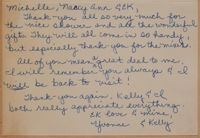 Michelle, Nancy Ann & EK,
Thank-you all so very much for
the nice shower and all the wonderful
gifts. They will all come in so handy,
but especially thank-you for the mixer.
All of you mean a great deal to me,
I will remember you always & I
will be back to visit!
Thank-you again, Kelly & I
both really appreciate everything.
love & mine,
Yvonne & Kelly